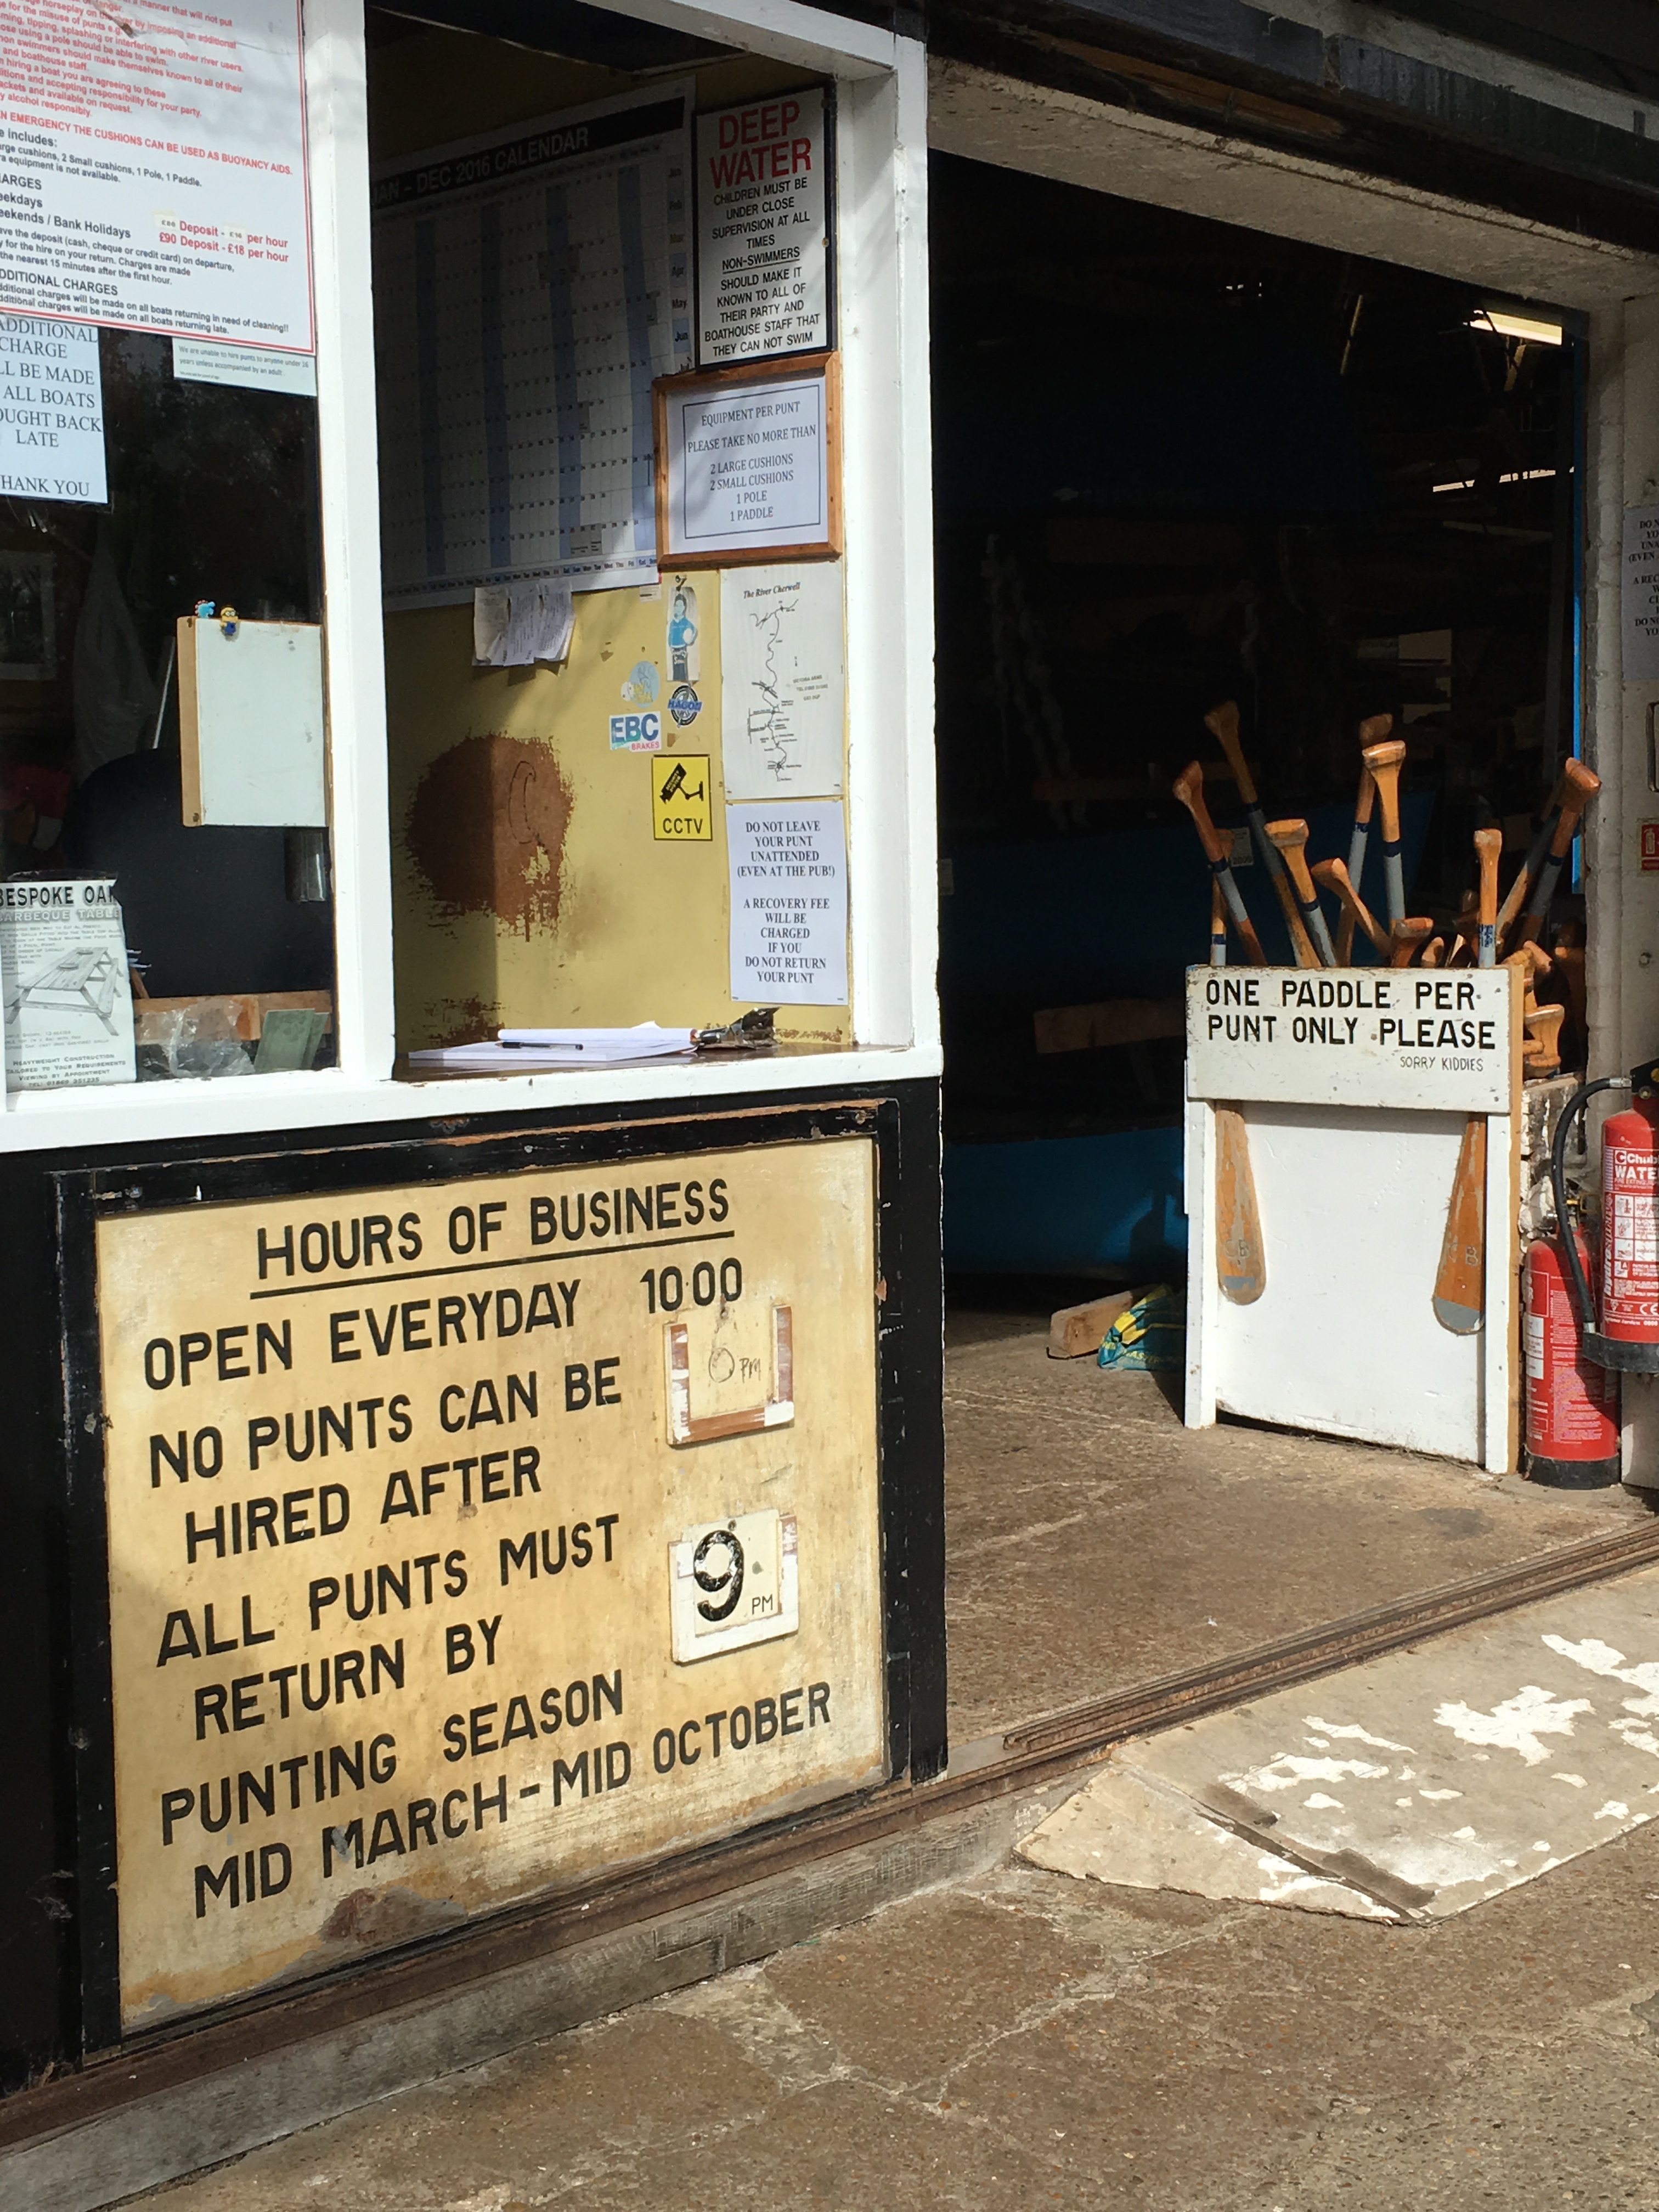 manner that will not put
for the misuse of punts e.g. by imposing an additional
tipping, splashing or interfering with other river users.
using a pole should be able to swim.
non swimmers should make themselves known to all of their
and boathouse staff.
hiring a boat you are agreeing to these
and accepting responsibility for your party.
and available on request.
alcohol responsibly.
EMERGENCY THE CUSHIONS CAN BE USED AS BUOYANCY AIDS.
includes:
cushions, 2 Small cushions, 1 Pole, 1 Paddle.
equipment is not available.
Deposit - per hour
/ Bank Holidays £90 Deposit - £18 per hour
the deposit (cash, cheque or credit card) on departure,
for the hire on your return. Charges are made
the nearest 15 minutes after the first hour.
CHARGES
charges will be made on all boats returning in need of cleaning!!
charges will be made on all boats returning late.
ADDITIONAL
CHARGE
LL BE MADE
ALL BOATS
OUGHT BACK
LATE
HANK YOU
We are unable to hire punts to anyone under 16
years unless accompanied by an adult.
AN - DEC 2016 CALENDAR
DEEP
WATER
CHILDREN MUST BE
UNDER CLOSE
SUPERVISION AT ALL
TIMES
NON-SWIMMERS
SHOULD MAKE IT
KNOWN TO ALL OF
THEIR PARTY AND
BOATHOUSE STAFF THAT
THEY CAN NOT SWIM
EQUIPMENT PER PUNT
PLEASE TAKE NO MORE THAN
2 LARGE CUSHIONS
2 SMALL CUSHIONS
1 POLE
1 PADDLE
The River Cherwell
HAGON
EBC
BRAKES
CCTV
DO NOT LEAVE
YOUR PUNT
UNATTENDED
(EVEN AT THE PUB!)
A RECOVERY FEE
WILL BE
CHARGED
IF YOU
DO NOT RETURN
YOUR PUNT
BESPOKE OAK
BARBEQUE TABLE
HEAVYWEIGHT CONSTRUCTION
TAILORED TO YOUR REQUIREMENTS
VIEWING BY APPOINTMENT
ONE PADDLE PER
PUNT ONLY PLEASE
SORRY KIDDIES
Chubb
WATER
HOURS OF BUSINESS
OPEN EVERYDAY 10·00
NO PUNTS CAN BE
HIRED AFTER 6 PM
ALL PUNTS MUST
RETURN BY 9 PM
PUNTING SEASON
MID MARCH - MID OCTOBER